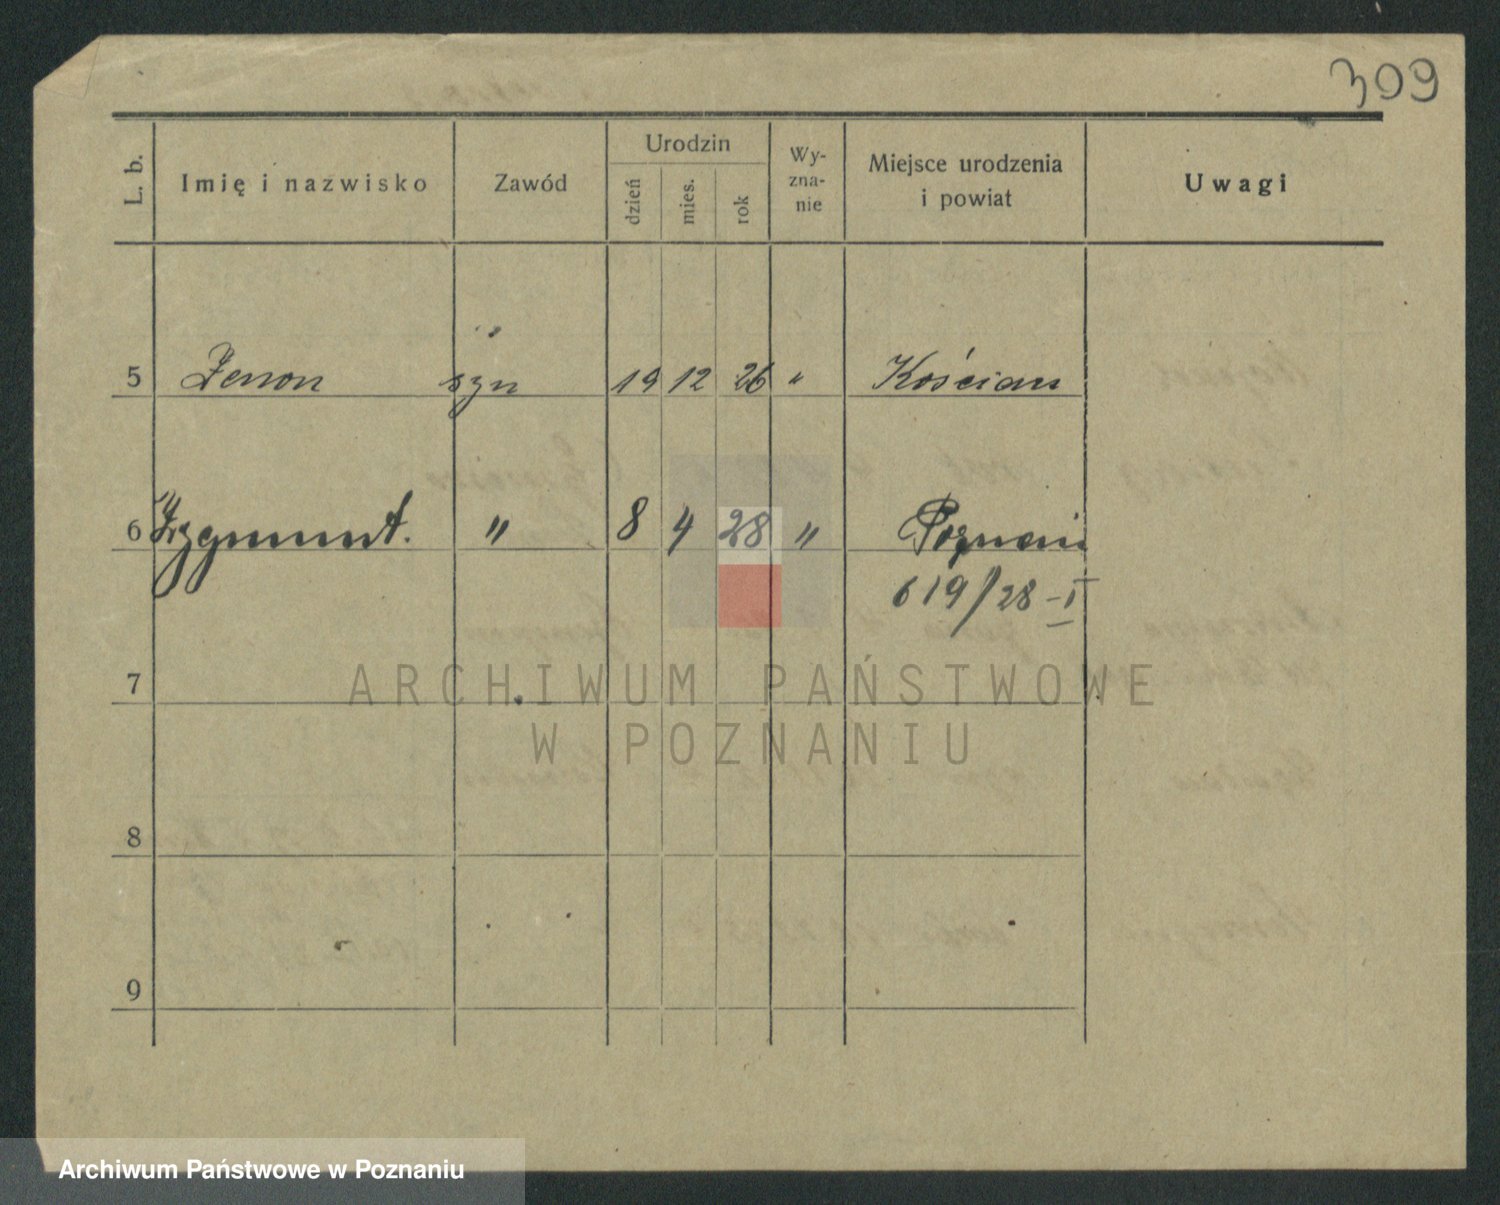 309
L. b. Imię i nazwisko Zawód Urodzin dzień mies. rok Wy-zna-nie Miejsce urodzenia i powiat Uwagi
5 Zenon syn 19 12 26 " Kościan
6 Zygmunt. " 8 4 28 " Poznań
619/28-I
7
ARCHIWUM PAŃSTWOWE
W POZNANIU
8
9
Archiwum Państwowe w Poznaniu